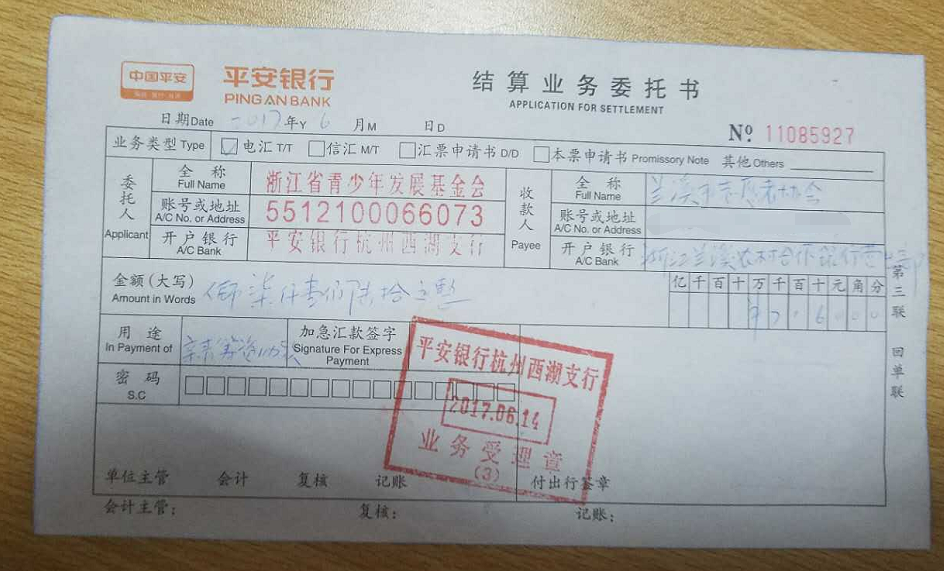 中国平安
保险·银行·投资
平安银行
PING AN BANK
结算业务委托书
APPLICATION FOR SETTLEMENT
日期Date 2017年Y 6 月M 日D
No 11085927
业务类型Type 电汇T/T 信汇M/T 汇票申请书D/D 本票申请书Promissory Note 其他Others
委托人
Applicant
全称
Full Name
浙江省青少年发展基金会
账号或地址
A/C No. or Address
5512100066073
开户银行
A/C Bank
平安银行杭州西湖支行
收款人
Payee
全称
Full Name
兰溪市志愿者协会
账号或地址
A/C No. or Address
开户银行
A/C Bank
浙江兰溪农村合作银行营
金额(大写)
Amount in Words
柒仟壹佰陆拾元整
亿千百十万千百十元角分
716000
用途
In Payment of
加急汇款签字
Signature For Express Payment
密码
S.C
平安银行杭州西湖支行
2017.06.14
业务受理章
(3)
第三联 回单联
单位主管 会计 复核 记账 付出行签章
会计主管: 复核: 记账: